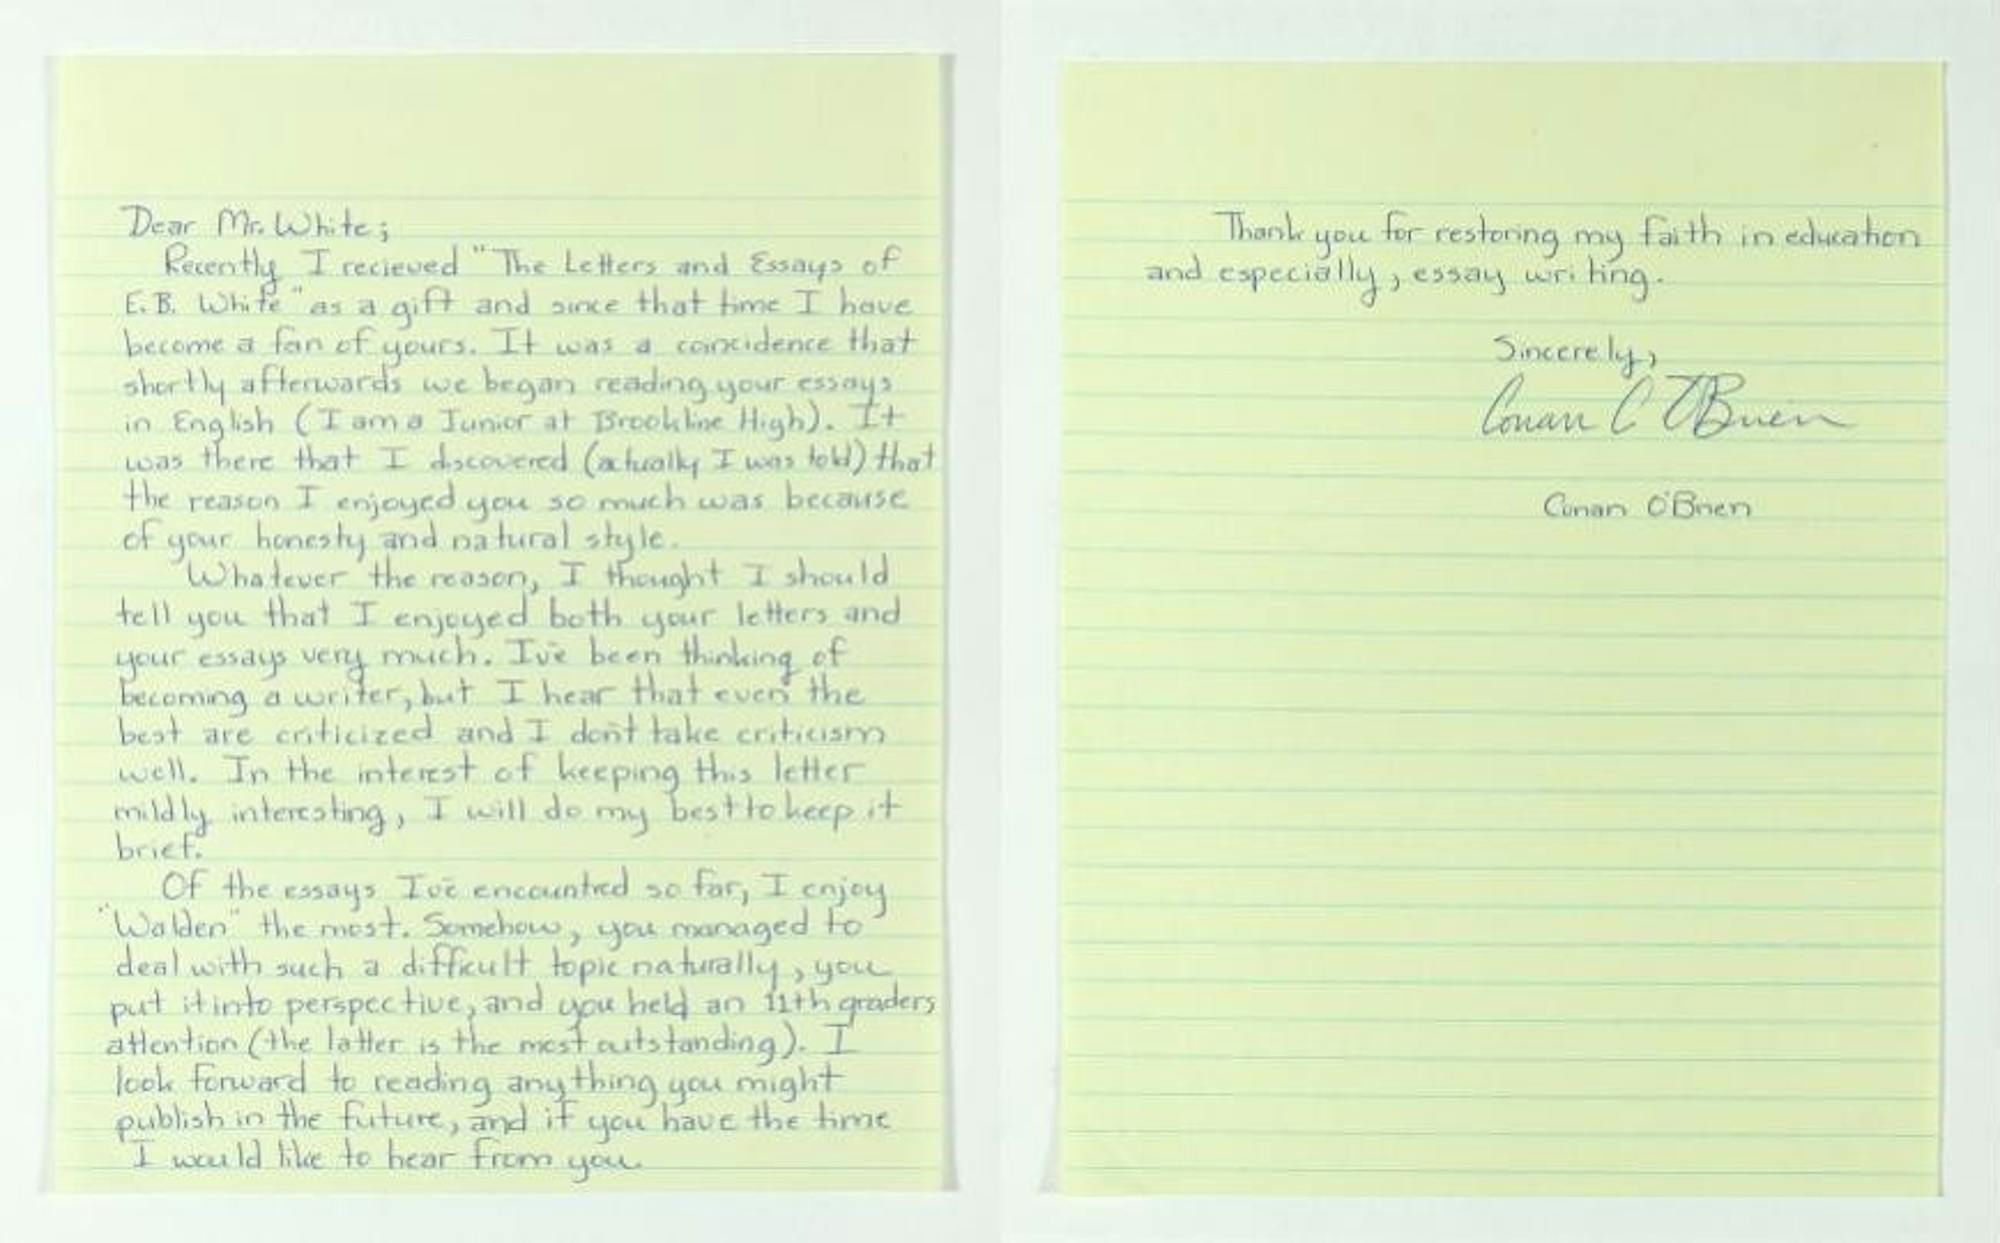 Dear Mr. White;
Recently I recieved "The Letters and Essays of
E.B. White" as a gift and since that time I have
become a fan of yours. It was a coincidence that
shortly afterwards we began reading your essays
in English (I am a Junior at Brookline High). It
was there that I discovered (actually I was told) that
the reason I enjoyed you so much was because
of your honesty and natural style.
Whatever the reason, I thought I should
tell you that I enjoyed both your letters and
your essays very much. I've been thinking of
becoming a writer, but I hear that even the
best are criticized and I don't take criticism
well. In the interest of keeping this letter
mildly interesting, I will do my best to keep it
brief.
Of the essays I've encountred so far, I enjoy
"Walden" the most. Somehow, you managed to
deal with such a difficult topic naturally, you
put it into perspective, and you held an 11th graders
attention (the latter is the most outstanding). I
look forward to reading anything you might
publish in the future, and if you have the time
I would like to hear from you.
Thank you for restoring my faith in education
and especially, essay writing.
Sincerely,
Conan C O'Brien
Conan O'Brien